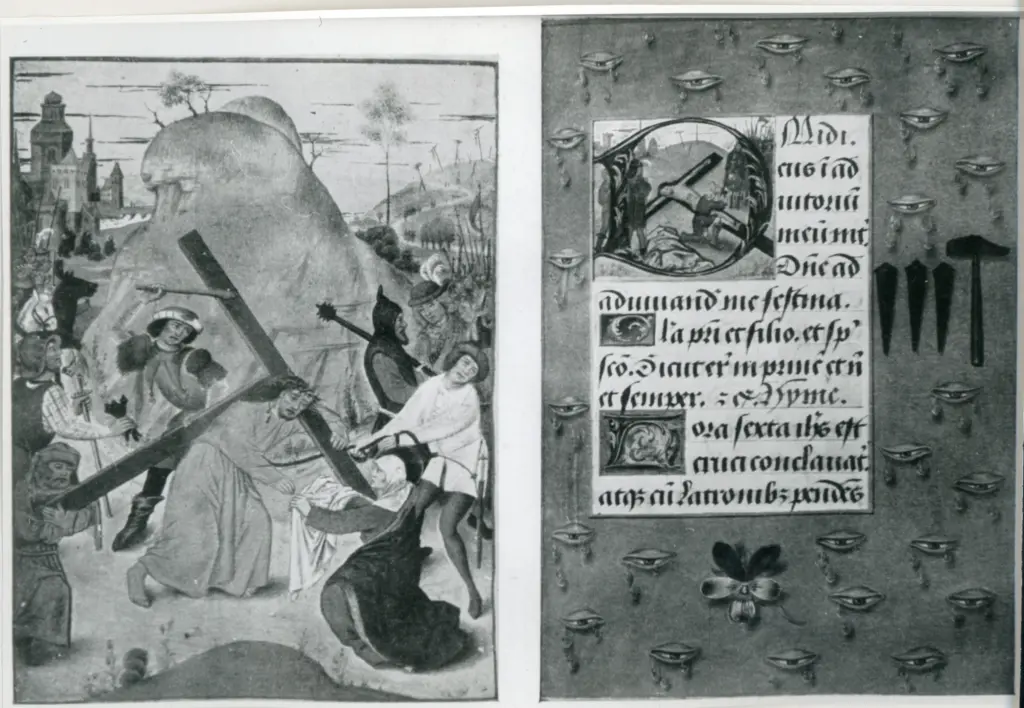 Midi.
Deus ī ad
iutoriū
meū int̄.
Dn̄e ad
adiuuand me festina.
Gl̄a pr̄i et filio. et sp̄
sc̄o. Sicut er̄ in princ̄ et n̄
et semper. Hyme.
Hora sexta ih̄s est
cruci conclauat.
atqȝ cū latronibȝ pendēs